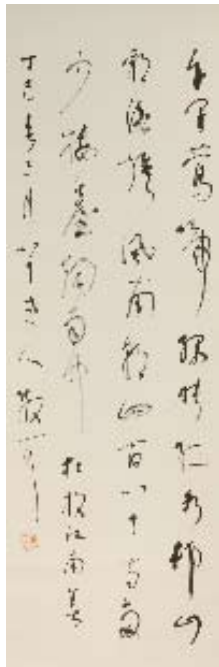 千里鶯啼綠映紅水村山
郭酒旗風南朝四百八十寺多
少樓臺烟雨中 杜牧江南春
丁巳春三月八十老人散耳